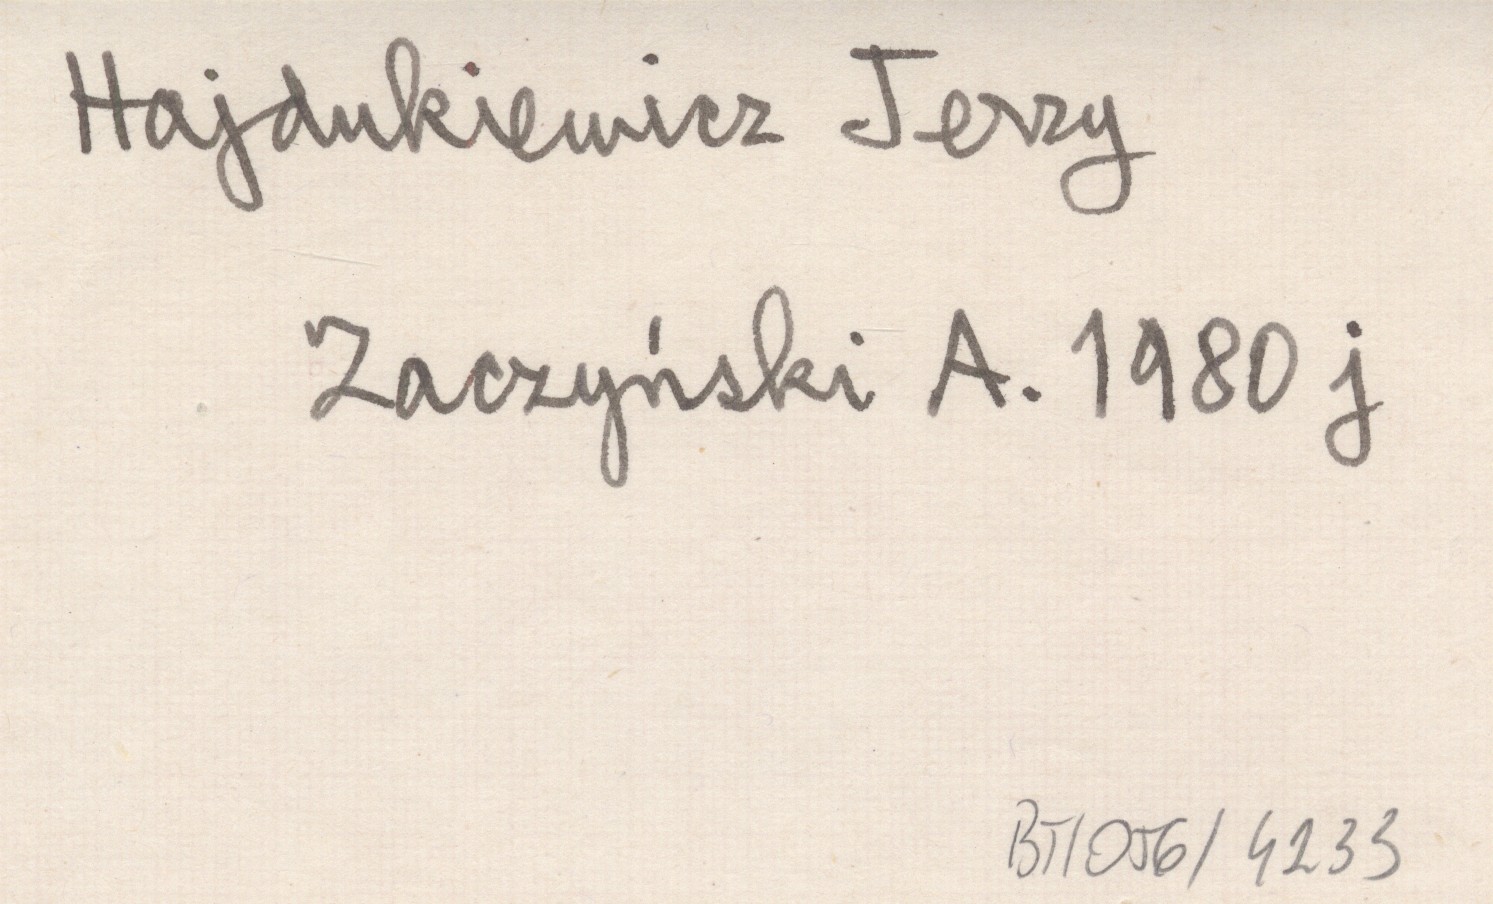 Hajdukiewicz Jerzy
Zaczyński A. 1980 j
BT/056/4233